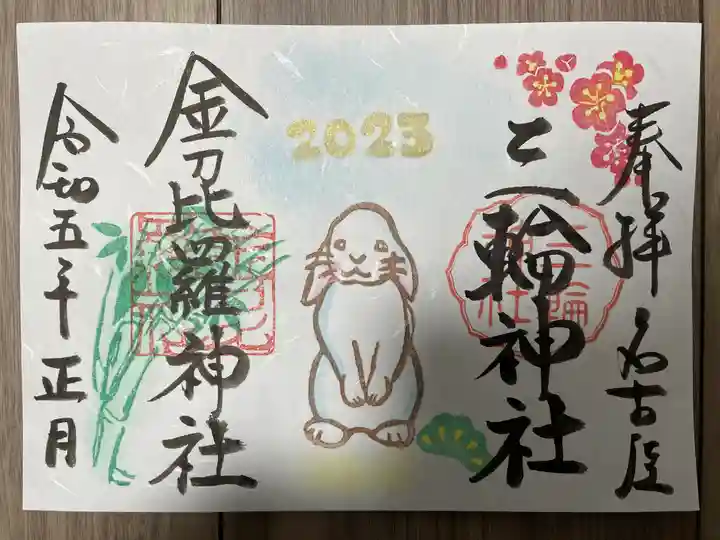 奉拝 名古屋
三輪神社
三輪神社
2023
金毘羅神社
令和五年 正月